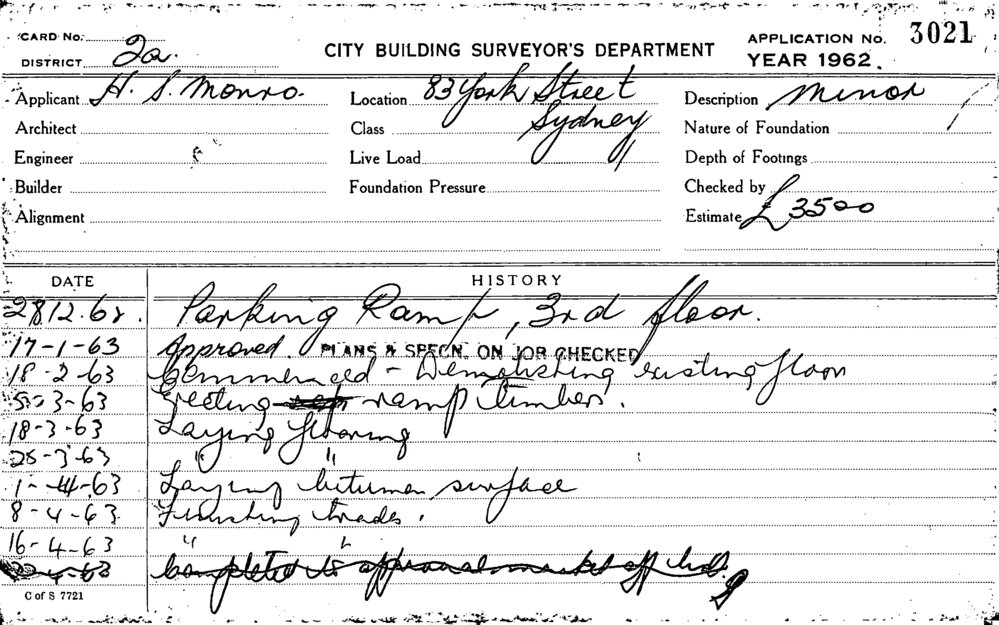 CARD No.
DISTRICT 2a.
CITY BUILDING SURVEYOR'S DEPARTMENT
APPLICATION No. 3021
YEAR 1962.
Applicant H. S. Monro.
Location 83 York Street
Sydney
Description Minor
Architect
Class
Nature of Foundation
Engineer
Live Load
Depth of Footings
Builder
Foundation Pressure
Checked by
Alignment
Estimate £3500
DATE HISTORY
28.12.62. Parking Ramp, 3rd floor.
17-1-63 Approved. PLANS & SPECN. ON JOB CHECKED
18-2-63 Commenced - Demolishing existing floor
5-3-63 Erecting ramp timbers.
18-3-63 Laying flooring
25-3-63 " "
1-4-63 Laying bitumen surface
8-4-63 Finishing trades.
16-4-63 " "
Completed to approval
C of S 7721